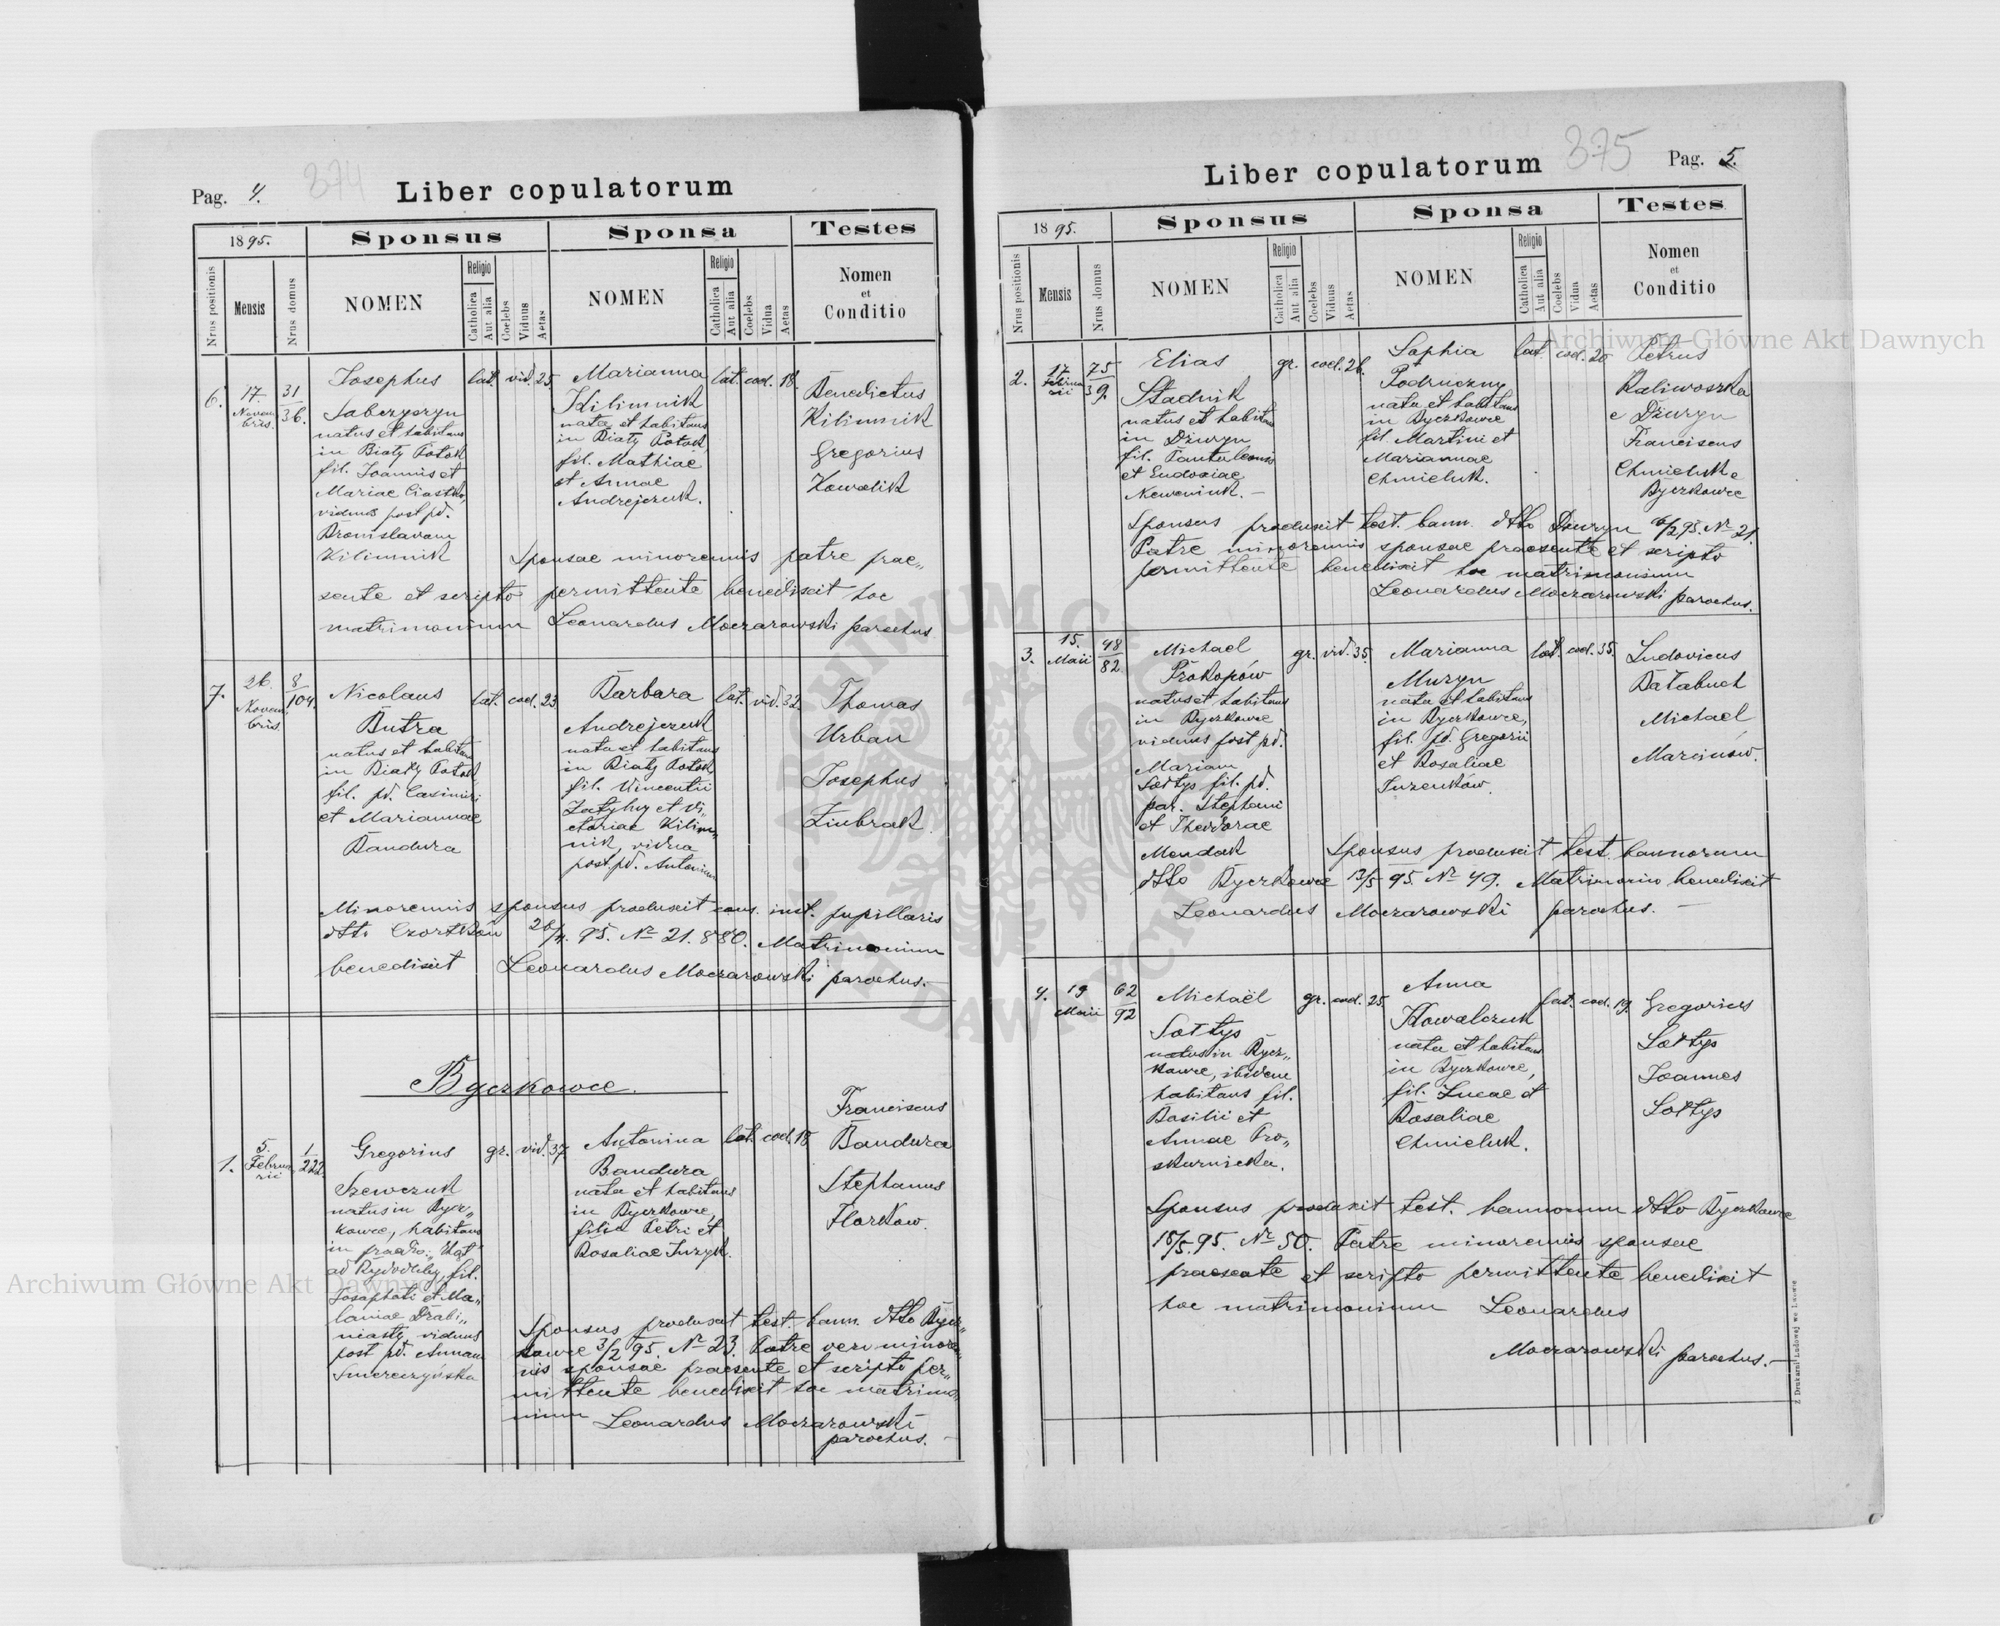 Pag. 4.
374
Liber copulatorum
1895.
Sponsus
Sponsa
Testes
Nrus positionis
Mensis
Nrus domus
NOMEN
Religio
Catholica
Aut alia
Coelebs
Viduus
Aetas
NOMEN
Religio
Catholica
Aut alia
Coelebs
Vidua
Aetas
Nomen
et
Conditio
6.
17.
Novem
bris.
31
36.
Josephus
natus et habitans
in Biały Potok
fil. Joannis et
Mariae Ciastko,
viduus post pd.
Bronislavam
Kilimnik
lat. vid. 25
Marianna
Kilimnik
nata et habitans
in Biały Potok,
fil. Mathiae
et Annae
Andrejczuk.
lat. coel. 18.
Benedictus
Kilimnik
Gregorius
Kowalik
Sponsae minorennis patre prae„
sente et scripto permittente benedixit hoc
matrimonium Leonardus Moczarowski parochus
7.
26.
Novem
bris.
8
104.
Nicolaus
Butra
natus et habitans
in Biały Potok,
fil. pd. Casimiri
et Mariannae
Bandura
lat. coel. 23
Barbara
Andrejczuk
nata et habitans
in Biały Potok,
fil. Vincentii
et Vi„
ctoriae Kilim„
nik, vidua
post pd. Antonium
lat. vid. 32.
Thomas
Urban
Josephus
Ziubrak
Minorennis sponsus produxit cons. inst. pupillaris
dtto Czortków 26/4. 95. Nr 21.880. Matrimonium
benedixit Leonardus Moczarowski parochus.-
Byczkowce.
1.
5.
Februa
rii
1
222.
Gregorius
Szewczuk
natus in Bycz„
kowce, habitans
ad Rydoduby, fil.
Josaphati et Ma„
laniae Drabi„
niasty, viduus
post pd. Annam
Smereczyńska
gr. vid. 37.
Antonina
Bandura
nata et habitans
in Byczkowce,
filia Petri et
Rosaliae Juzyk.
lat. coel. 18
Franciscus
Bandura
Stephanus
Florkow.
Sponsus produxit test. bann. dtto Bycz„
kowce 3/2 95. Nr 23. Patre vero minoren„
nis sponsae praesente et scripto per„
mittente benedixit hoc matrimo„
nium Leonardus Moczarowski
parochus. -
375
Liber copulatorum
Pag. 5.
1895.
Sponsus
Sponsa
Testes
Nrus positionis
Mensis
Nrus domus
NOMEN
Religio
Catholica
Aut alia
Coelebs
Viduus
Aetas
NOMEN
Religio
Catholica
Aut alia
Coelebs
Vidua
Aetas
Nomen
et
Conditio
2.
17
Februa
rii
75
39.
Elias
Stadnik
natus et habitans
in Dżuryn
fil. Pantaleonis
et Eudoxiae
gr. coel. 26.
Sophia
Podruczny
nata et habitans
in Byczkowce
fil. Martini et
Mariannae
Chmieluk.
lat. coel. 20
Petrus
Baliwoszka
e Dżuryn
Franciscus
Chmieluk e
Byczkowce
Sponsus produxit test. bann. dtto Dżuryn 16/2 95. Nr 21.
Patre minorennis sponsae praesente et scripto
permittente benedixit hoc matrimonium
Leonardus Moczarowski parochus.
3.
15.
Maii
48
82
Michael
Prokopów
natus et habitans
in Byczkowce
viduus post pd.
Mariam
Sołtys fil. pd.
par. Stephani
et Theodorae
Mendak
gr. vid. 35.
Marianna
Muzyn
nata et habitans
in Byczkowce,
fil. pd. Gregorii
et Rosaliae
Juzenków.
lat. coel. 35.
Ludovicus
Bałabuch
Michael
Marciniów.
Sponsus produxit test. bannorum
dtto Byczkowce 13/5 95. Nr 49. Matrimonio benedixit
Leonardus Moczarowski parochus. -
4.
19
Maii
62
92
Michaël
Sołtys
natus in Bycz„
kowce, ibidem
habitans fil.
Basilii et
Annae Pro„
skurnicka.
gr. coel. 25.
Anna
Kowalczuk
nata et habitans
in Byczkowce,
fil. Lucae et
Rosaliae
Chmieluk.
lat. coel. 19.
Gregorius
Sołtys
Joannes
Sołtys
Sponsus produxit test. bannorum dtto Byczkowce
18/5. 95. Nr 50. Patre minorennis sponsae
praesente et scripto permittente benedixit
hoc matrimonium Leonardus
Moczarowski parochus.-
Z Drukarni Ludowej we Lwowie
Archiwum Główne Akt Dawnych
Archiwum Główne Akt Dawnych